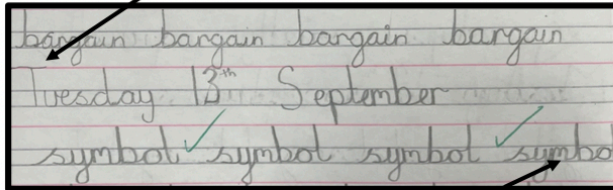 bargain bargain bargain bargain
Tuesday 13th September
symbol symbol symbol symbo